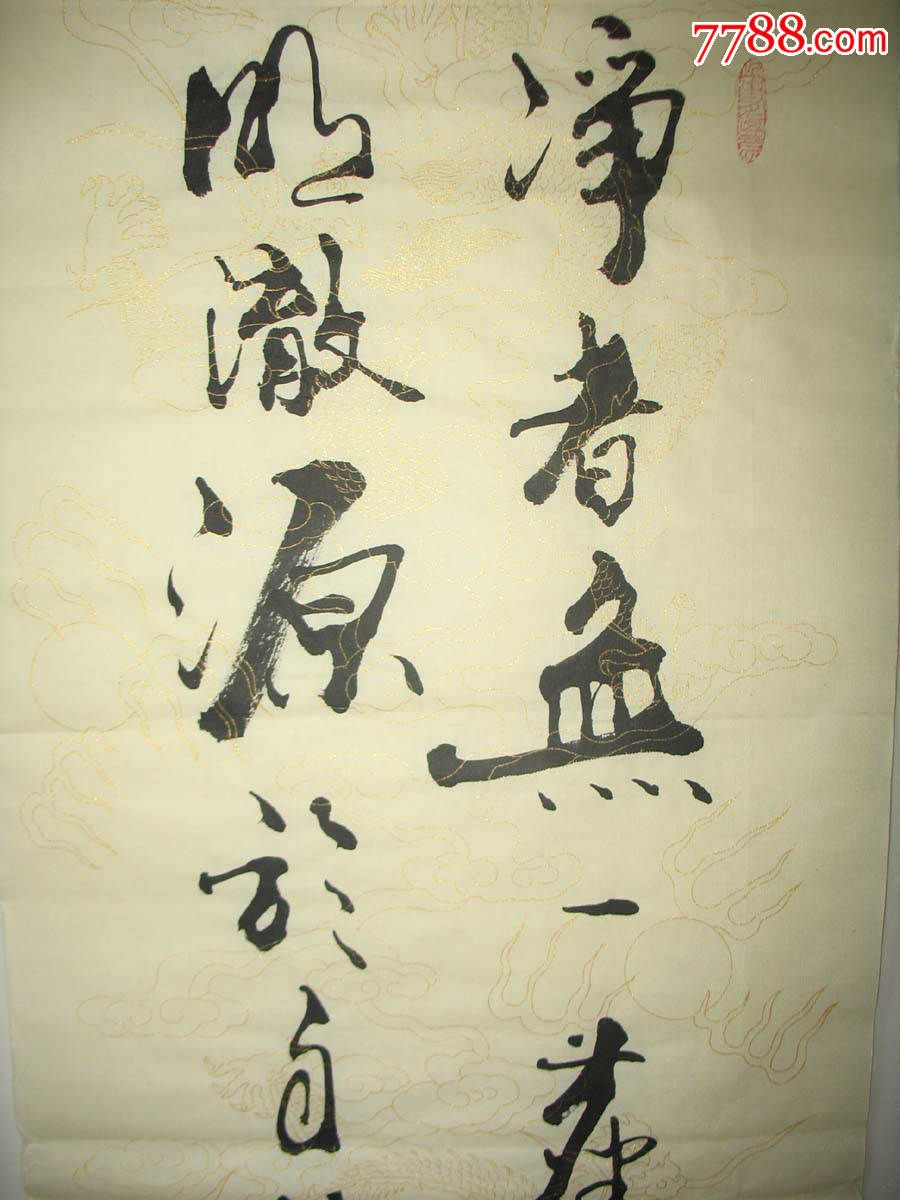 7788.com
淨者無一
明澈源於自